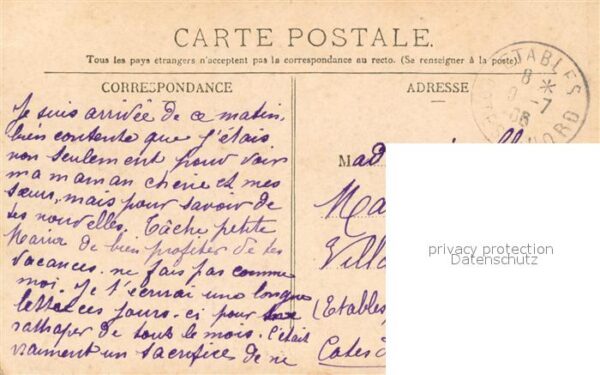 CARTE POSTALE.
Tous les pays étrangers n'acceptent pas la correspondance au recto. (Se renseigner à la poste)
CORRESPONDANCE
Je suis arrivée de ce matin,
bien contente que j'étais
non seulement pour voir
ma maman chérie et mes
sœurs, mais pour savoir de
tes nouvelles. Tâche petite
Maria de bien profiter de tes
vacances. ne fais pas comme
moi. Je t'écrirai une longue
lettre ces jours-ci pour
rattraper de tout le mois. C'était
vraiment un sacrifice de ne
ADRESSE
Mad
Ma
Villa
(Etables
Cotes d
ETABLES
8 *
9 -7
08
NORD
privacy protection
Datenschutz